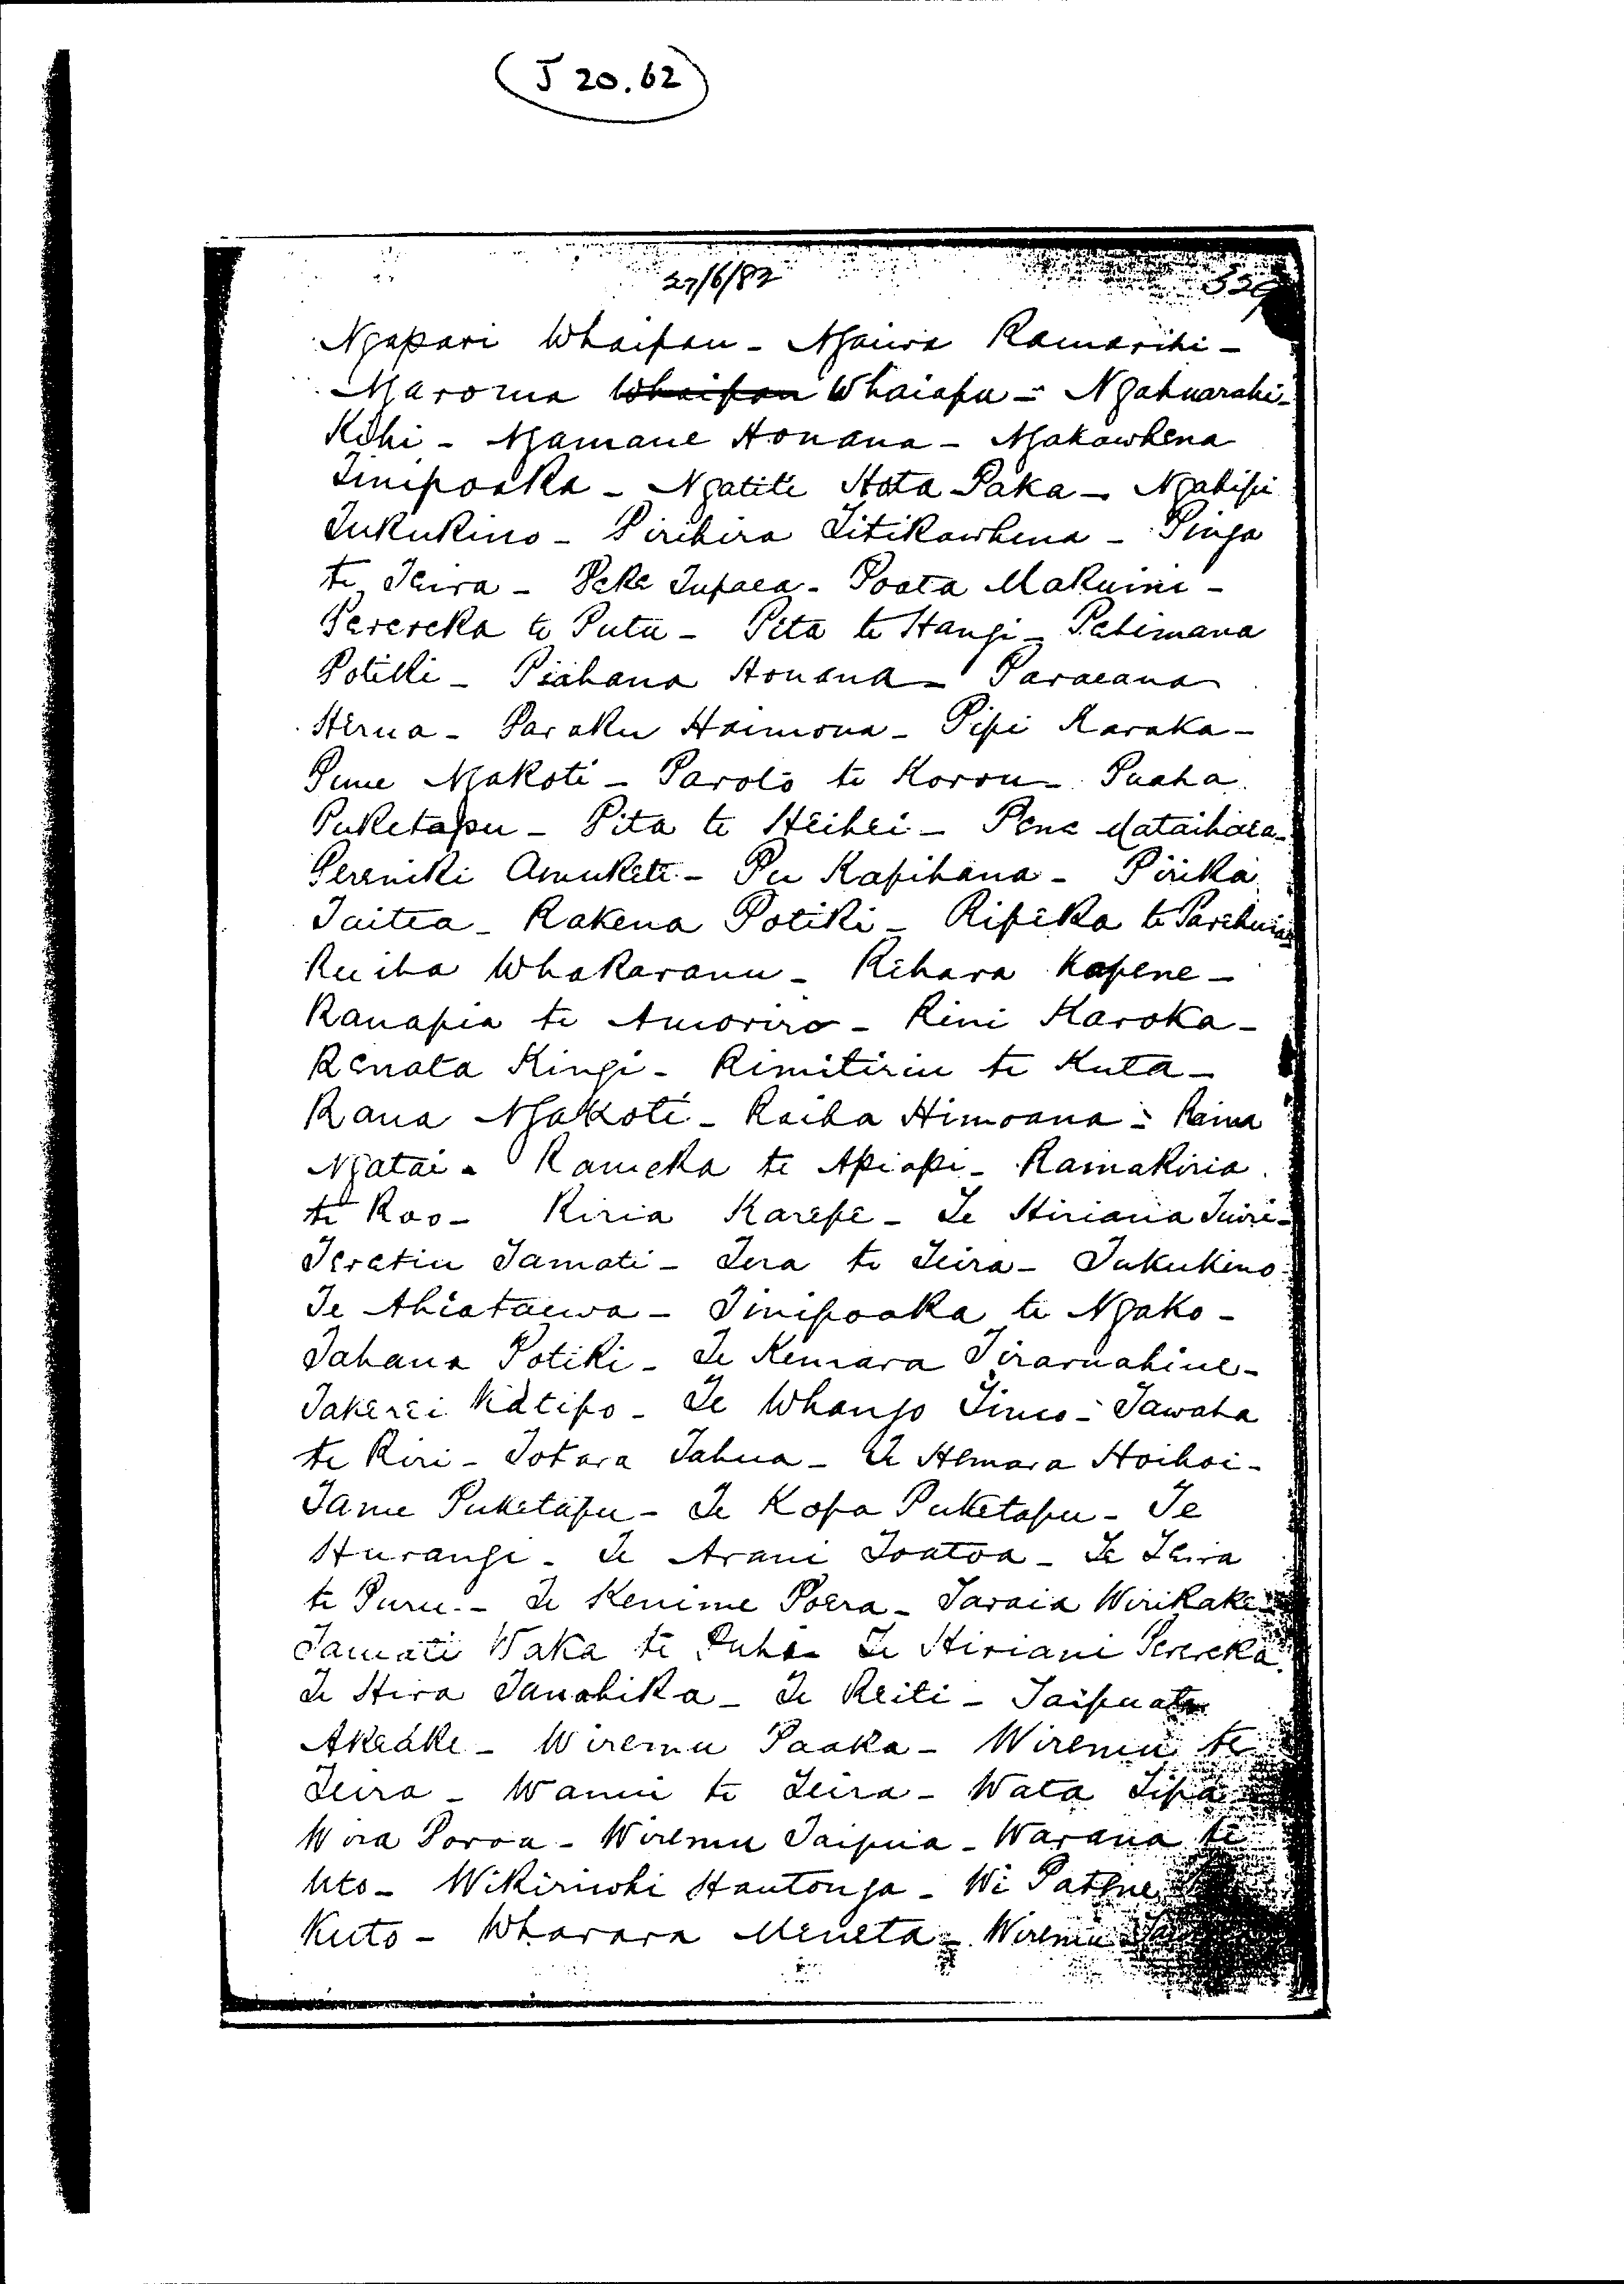 (J 20.62)
27/6/82
329
Ngapari Whaipau - Ngaiwa Ramarihi -
Ngaroma Whaipau Whaiapu - Ngahuarahi -
Kihi - Ngamane Honana - Ngakawhena
Tinipoaka - Ngatiti Hota Paka - Ngahipi
Tukukino - Pirihira Titikawhena - Pinga
te Teira - Peka Tupaea - Poata Makuini -
Perereka te Putu - Pita te Hangi - Pehimana
Potiki - Piahana Honana - Paraeana
Herua - Paraku Haimona - Pipi Karaka -
Pune Ngakoti - Paroto te Korou - Puaha
Puketapu - Pita te Heihei - Pene Mataihaea -
Pereniki Amuketi - Pu Kapihana - Pirika
Taitea - Rakena Potiki - Ripeka te Parehuia
Ruiha Whakaranu - Rihara Kapene -
Ranapia te Amoriro - Rini Karoka -
Renata Kingi - Rimitiriu te Kuta -
Rana Ngakoti - Raiha Himoana - Raima
Ngatai - Rameka te Apiapi - Ramakiria
te Rao - Riria Karepe - Te Hiriana Tuiri -
Teretiu Tamati - Tera te Teira - Tukukino
Te Ahiataewa - Tinipoaka te Ngako -
Tahana Potiki - Te Kemara Tiraruahine -
Takerei Katipo - Te Whango Timo - Tawaha
te Riri - Totara Tahua - Te Hemara Hoihoi -
Tame Puketapu - Te Kopa Puketapu - Te
Hurangi - Te Arani Toatoa - Te Teira
te Puru - Te Kenime Poera - Taraia Wirikake
Tamati Waka te Puhi - Te Hiriani Perereka
Te Hira Tanahika - Te Reiti - Taipuatu
Akeake - Wiremu Paaka - Wiremu te
Teira - Wanui te Teira - Wata Tipa
Wira Poroa - Wiremu Taipua - Warana te
Uto - Wikiriwhi Hautonga - Wi Patene
Kuto - Wharara Meneta - Wiremu